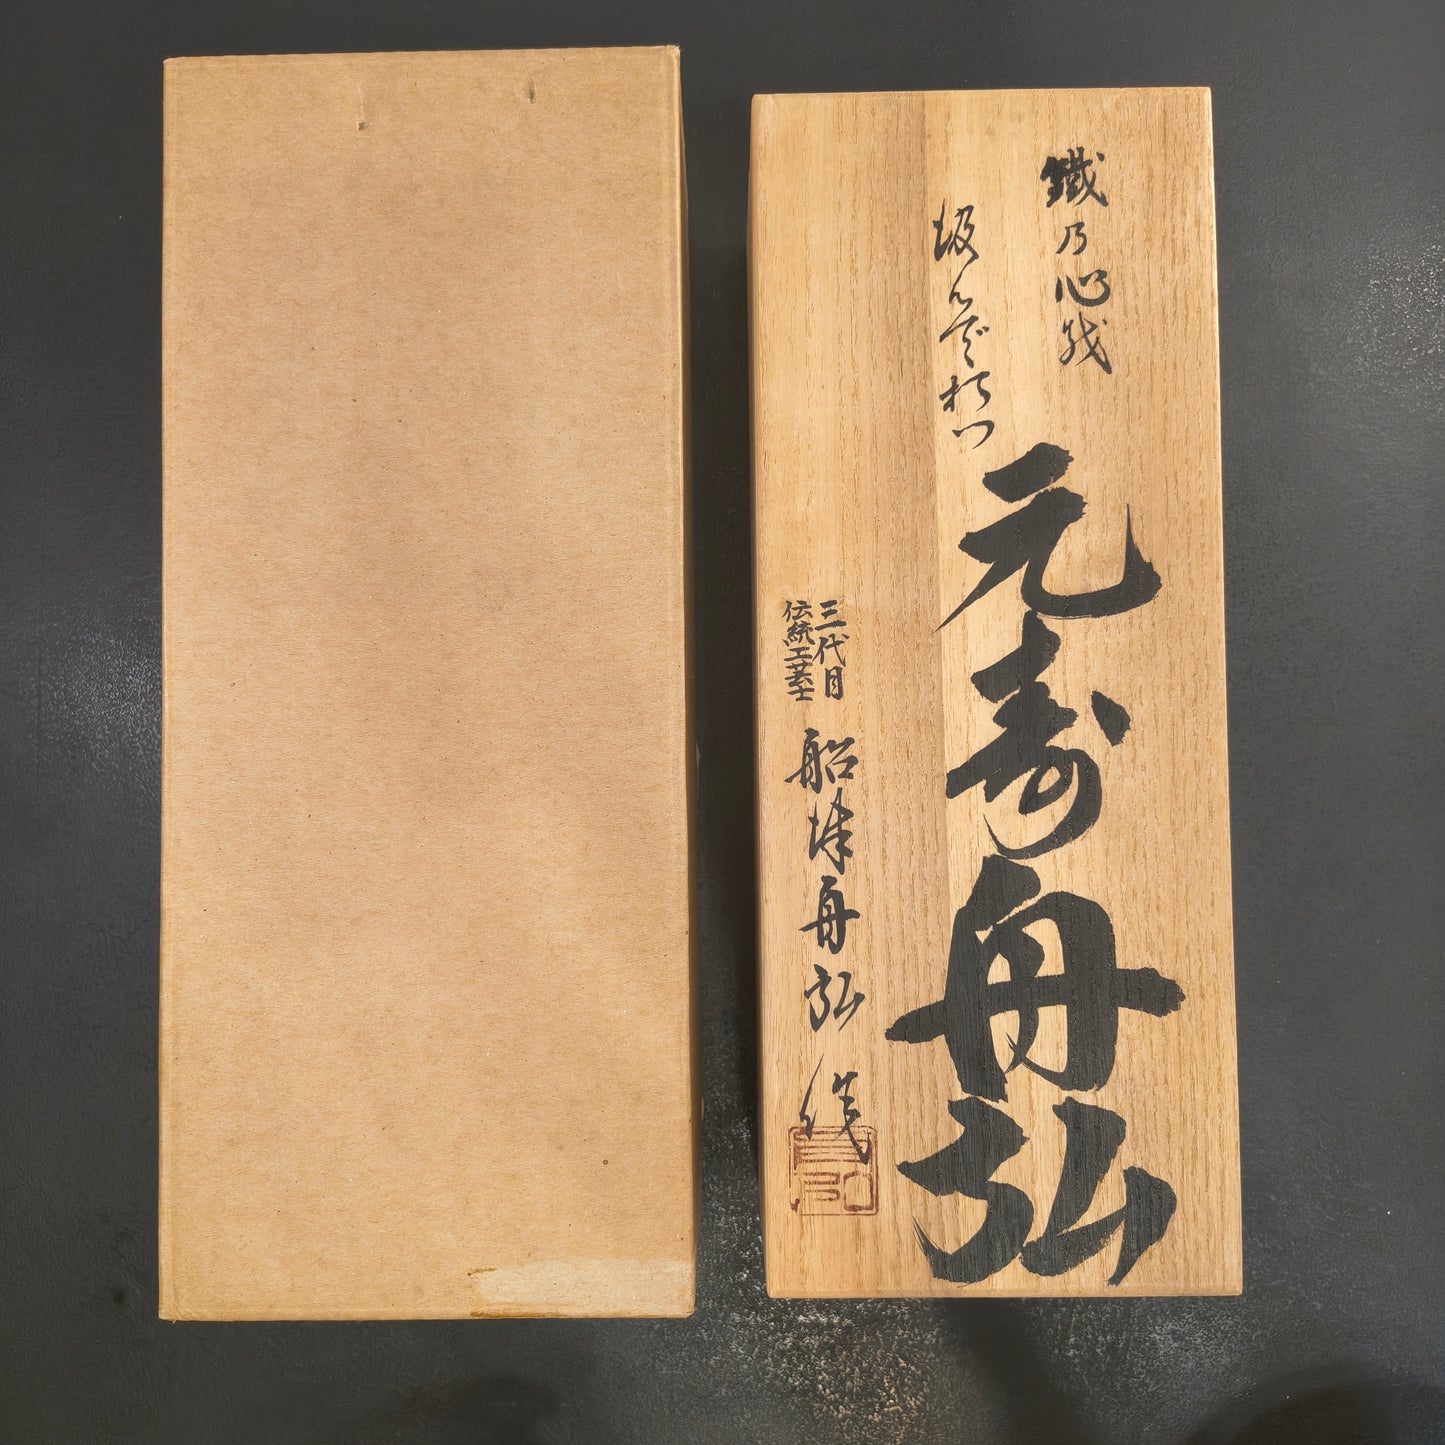 鐵乃心我
汲んで打つ
元寿舟弘
三代目
伝統工芸士
船津舟弘作